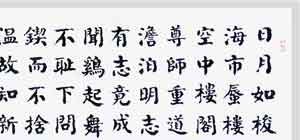 日月如梭
海市蜃樓
空中樓閣
尊師重道
澹泊明志
有志竟成
聞鷄起舞
不恥下問
鍥而不捨
温故知新